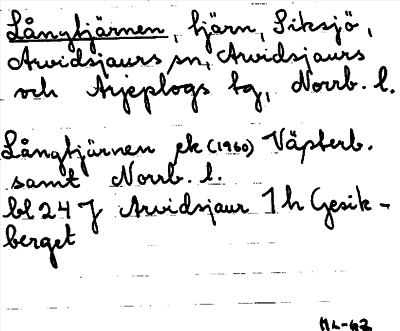 Långtjärnen, tjärn, Siksjö,
Arvidsjaurs sn, Arvidsjaurs
och Arjeplogs tg, Norrb. l.
Långtjärnen ek (1960) Västerb.
samt Norrb. l.
bl 24 J Arvidsjaur 1h Gesik-
berget